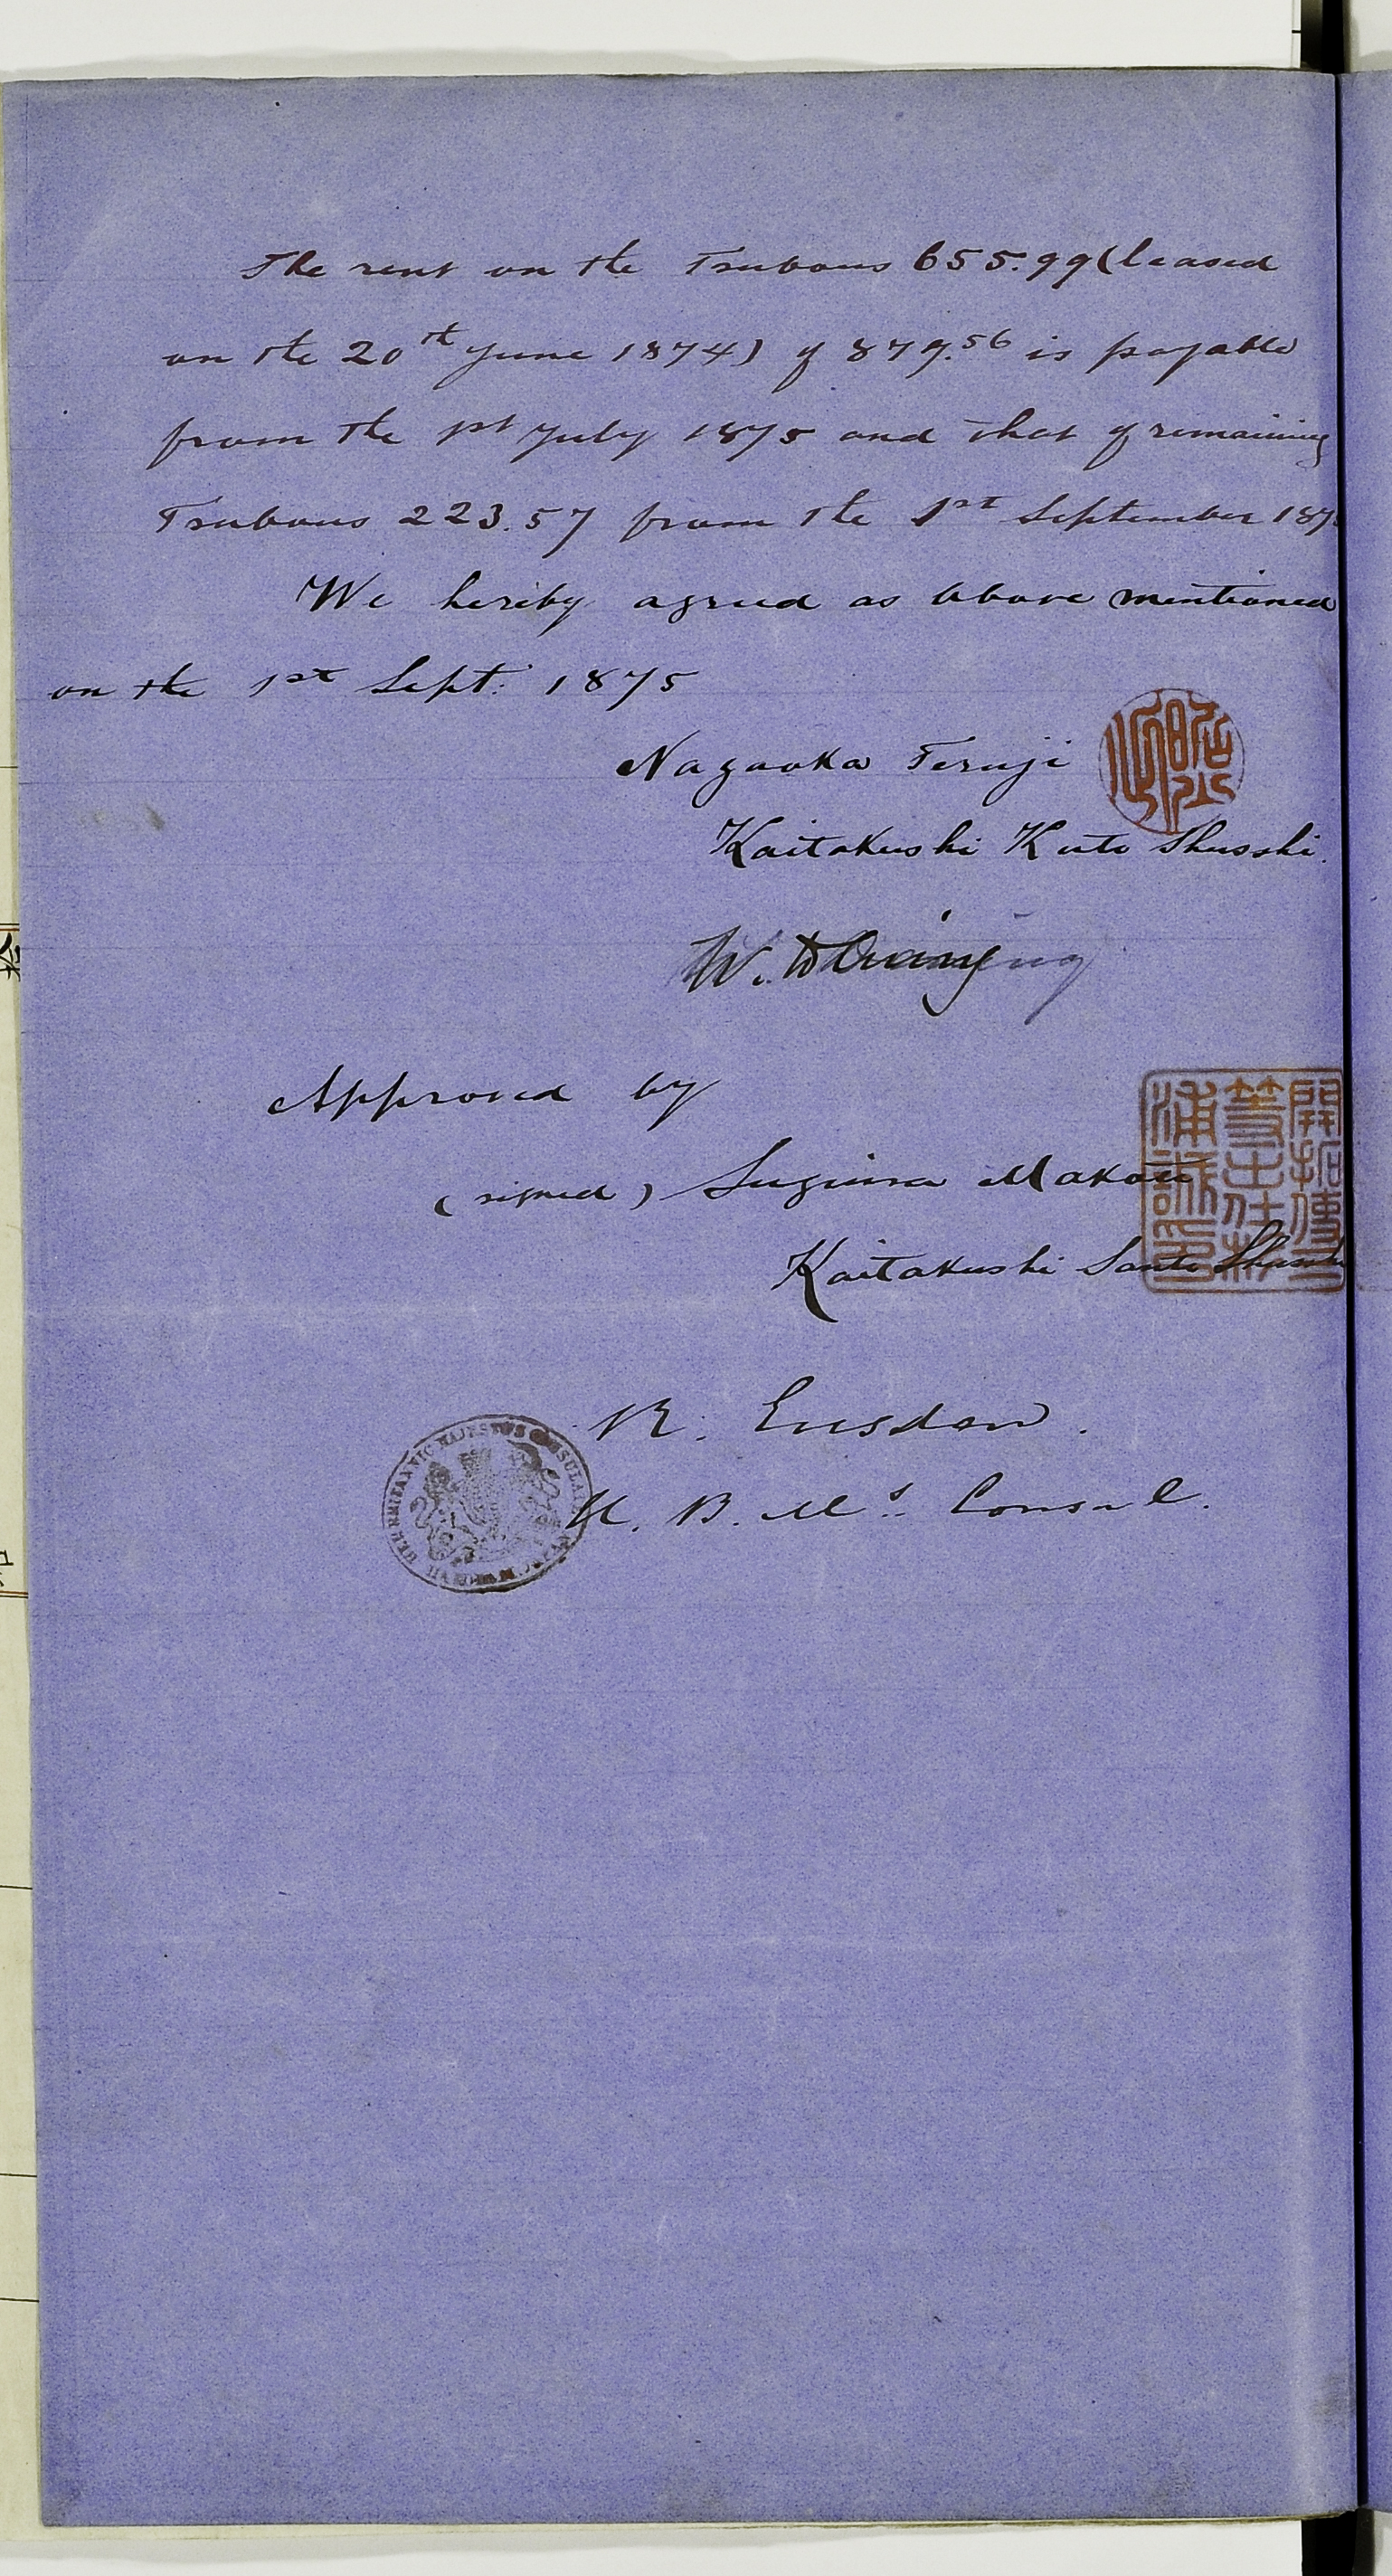 The rent on the Tsubous 655.99 (leased
on the 20th June 1874) of 879.56 is payable
from the 1st July 1875 and that of remaining
Tsubous 223.57 from the 1st September 187
We hereby agreed as above mentioned
on the 1st Sept. 1875
Nagaoka Teruji
Kaitakushi Kuto Shusshi.
W.
Approved by
(signed) Sugiura Makoto
Kaitakushi Santo Shusshi
開拓使三
等出仕杉
浦誠印
R. Eusden.
H. B. M's. Consul.